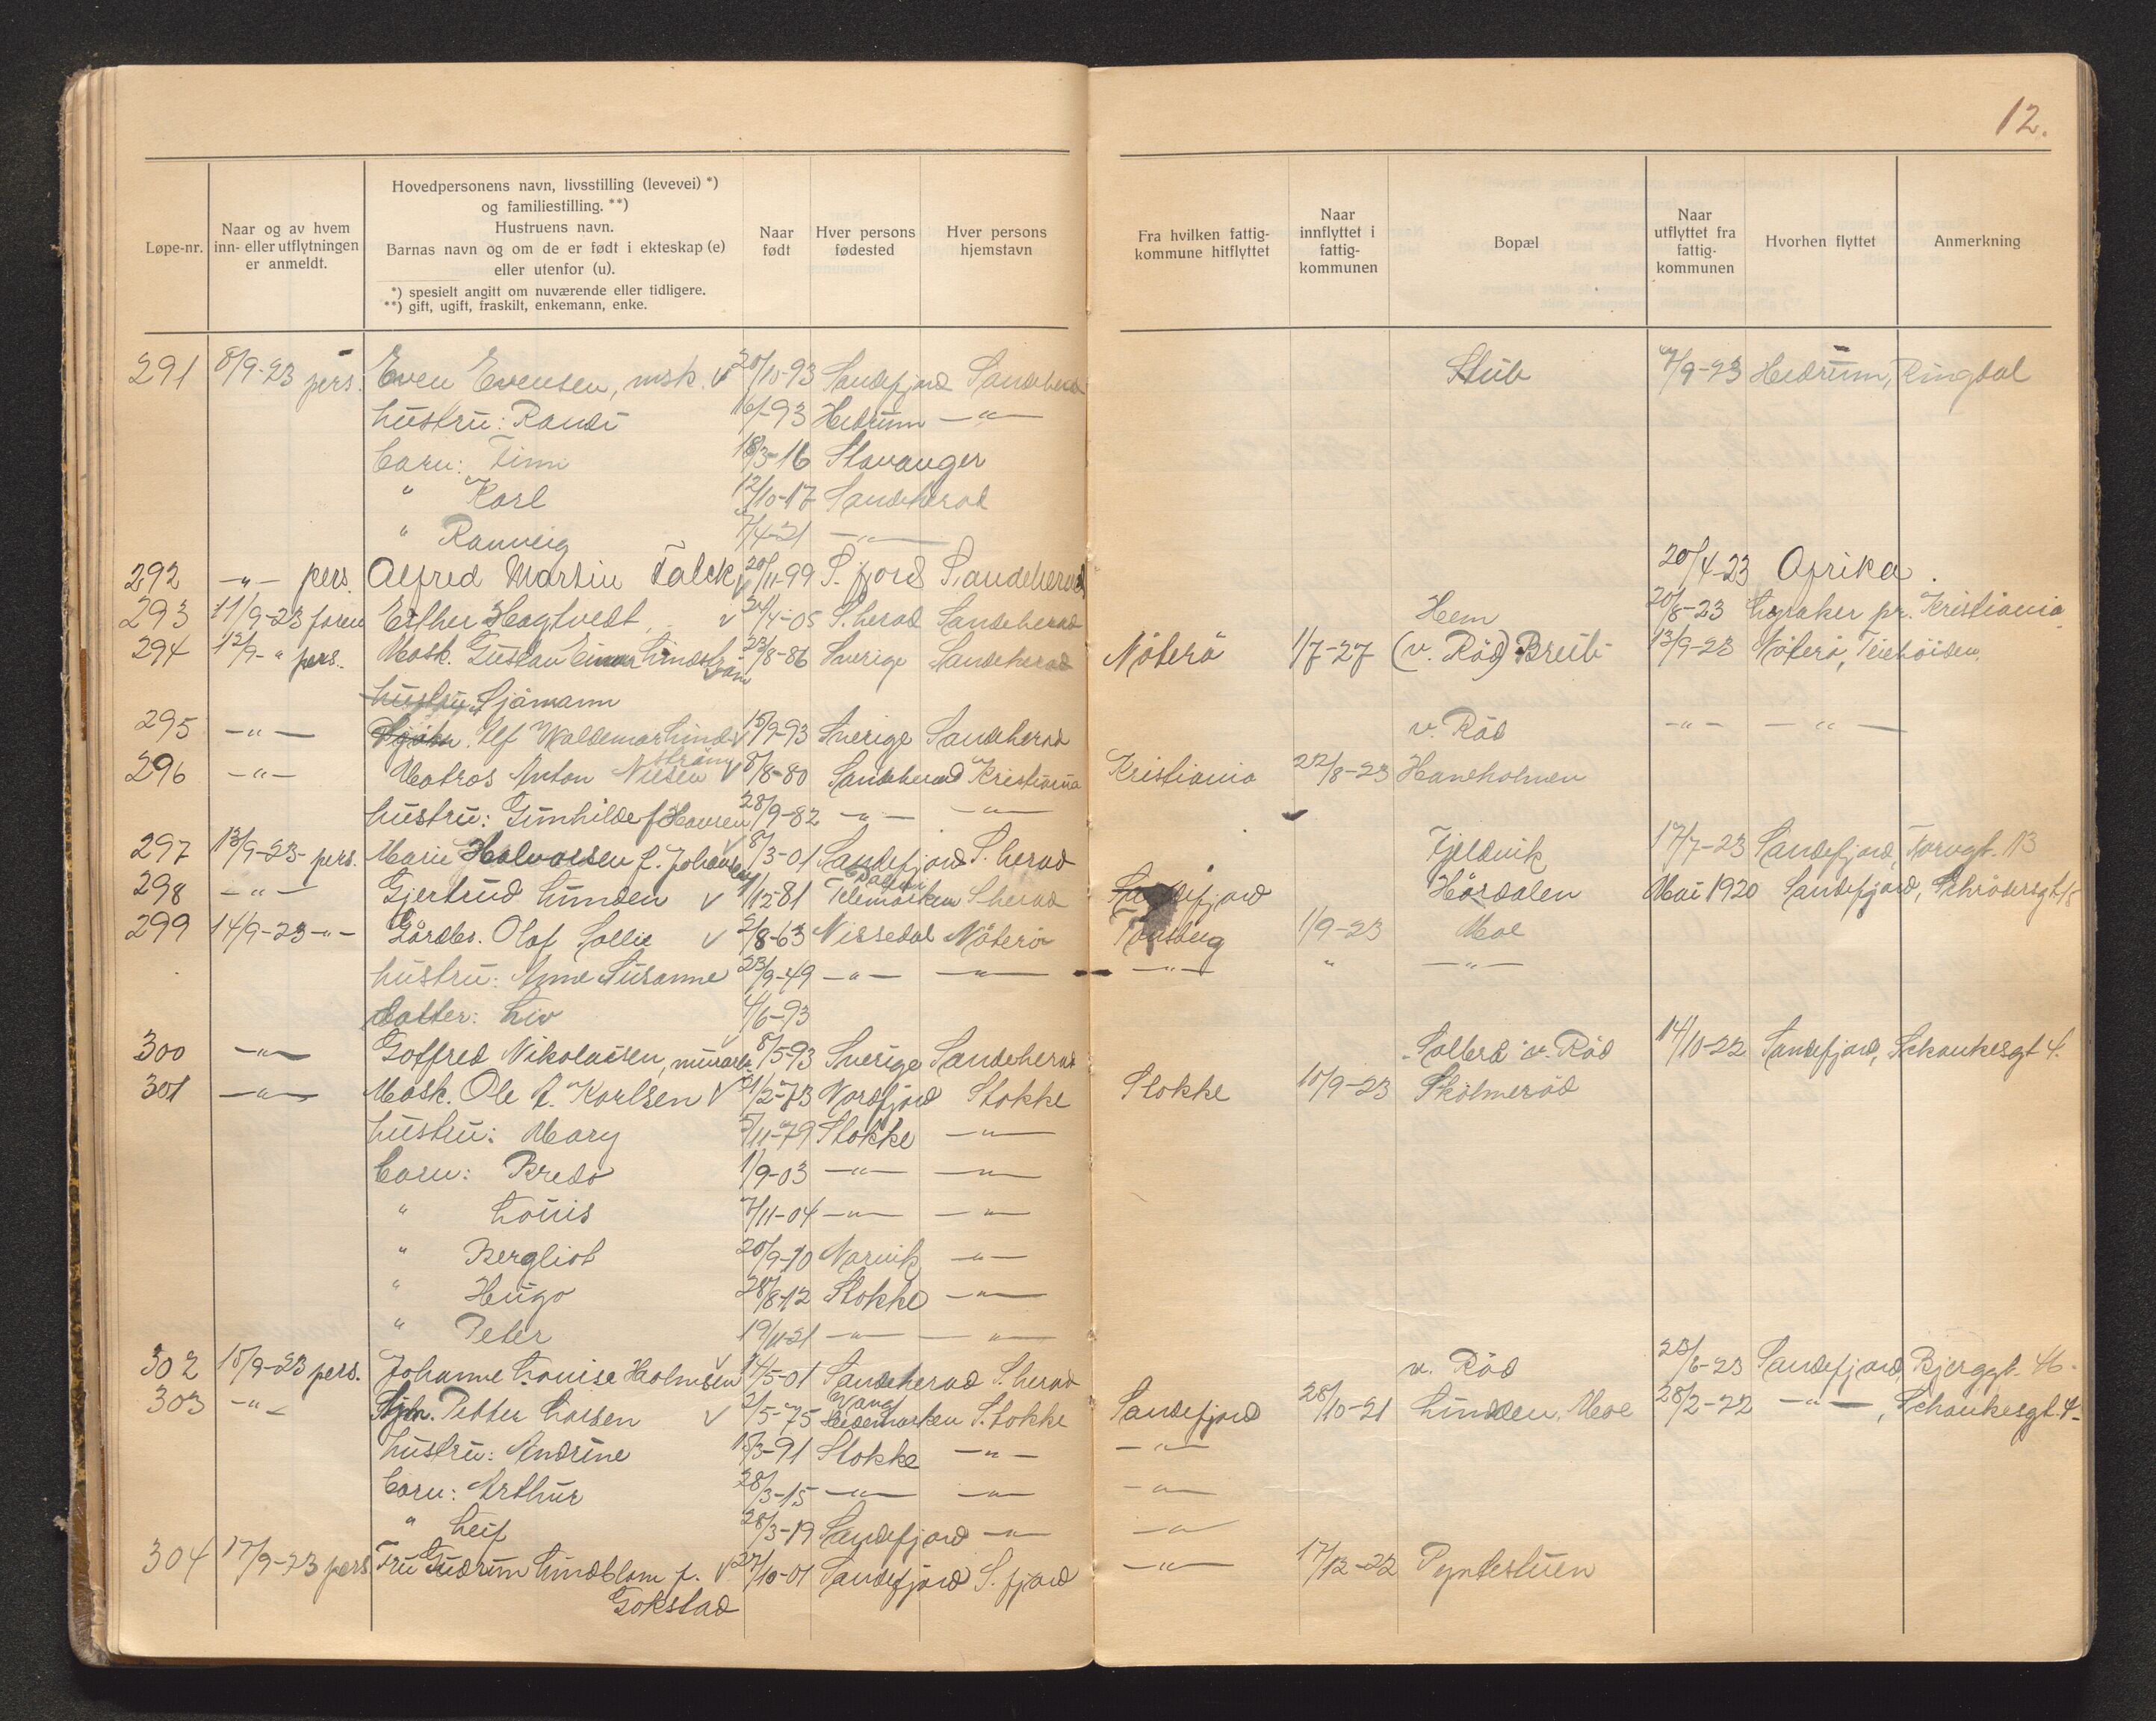 12.
Løpe-nr.
Naar og av hvem inn- eller utflytningen er anmeldt.
Hovedpersonens navn, livsstilling (levevei) *)
og familiestilling. **)
Hustruens navn.
Barnas navn og om de er født i ekteskap (e)
eller utenfor (u).
*) spesielt angitt om nuværende eller tidligere.
**) gift, ugift, fraskilt, enkemann, enke.
Naar født
Hver persons fødested
Hver persons hjemstavn
Fra hvilken fattig-kommune hitflyttet
Naar innflyttet i fattig-kommunen
Bopæl
Naar utflyttet fra fattig-kommunen
Hvorhen flyttet
Anmerkning
291 8/9-23 pers. Even Evensen, msk. v 20/10-93 Sandefjord Sandeherad Stub 7/9-23 Hedrum, Ringdal
hustru: Randi 16/-93 Hedrum -"-
barn: Finn 18/3-16 Stavanger
" Karl 12/10-17 Sandeherad
" Rannveig 7/4-21 -"-
292 -"- pers. Alfred Martin Falck v 20/11-99 S. fjord Sandeherad 20/4-23 Afrika.
293 11/9-23 foren Esther Hagtvedt v 24/4-05 S. herad Sandeherad Hem 20/8-23 pr. Kristiania
294 12/9-" pers. Mask. Gustav Einar Lindström 23/8-86 Sverige Sandeherad Nöterö 1/7-27 (v. Röd) 13/9-23 Nöterö, Teiehöiden.
hustru Sjömann
295 -"- Ulf Waldemar Lindström v 15/9-93 Sverige Sandeherad v. Röd -"- -"-
296 -"- Matros Anton Nilsen v 8/8-80 Sandeherad Kristiania Kristiania 22/8-23 Haneholmen
hustru: Gunhilde f. Hansen 28/9-82 -"- -"-
297 13/9-23- pers. Marie Halvorsen f. Johansen v 8/3-01 Sandefjord S. herad Fjeldvik 17/7-23 Sandefjord, Torvgt. 13
298 -"- Gjertrud Lunden v 1/12-81 Telemarken S. herad Sandefjord Hördalen Mai 1920 Sandefjord, Schrödersgt. 18
299 14/9-23 -"- Gårdbr. Olaf Sollie v 2/8-63 Nissedal Nöterö Tönsberg 1/9-23 Moe
hustru: Anne Susanne 23/9-49 -"- -"- -"- " -"-
datter: Liv 4/6-93
300 -"- Gotfred Nikolaisen, murarb. v 8/5-93 Sverige Sandeherad Solberg v. Röd 14/10-22 Sandefjord, Schankesgt 4.
301 -"- Mask. Ole A. Karlsen v 21/2-73 Nordfjord Stokke Stokke 10/9-23 Skolmeröd
hustru: Mary 5/11-79 Stokke -"-
barn: Bredo 1/9-03 -"- -"-
" Louis 7/11-04 -"- -"-
" Bergliot 20/9-10 Narvik -"-
" Hugo 28/8-12 Stokke -"-
" Peter 19/11-21 -"- -"-
302 15/9-23 pers. Johanne Louise Holmsen v 14/5-01 Sandeherad S. herad v. Röd 23/6-23 Sandefjord, Bjerggt. 46.
303 -"- Sjm. Petter Larsen v 2/5-75 Vang Hedemarken Stokke Sandefjord 28/10-21 Lunden, Moe 28/2-22 -"-, Schankesgt. 4-
hustru: Andrine 15/3-91 Stokke -"- -"-
barn: Arthur 28/3-15 -"- -"- -"-
" Leif 28/3-19 Sandefjord -"- -"-
304 17/9-23 pers Fru Gudrun Lindblom f. v 27/10-01 Sandefjord S. fjord -"- 17/12-22 Pyntestuen
Gokstad